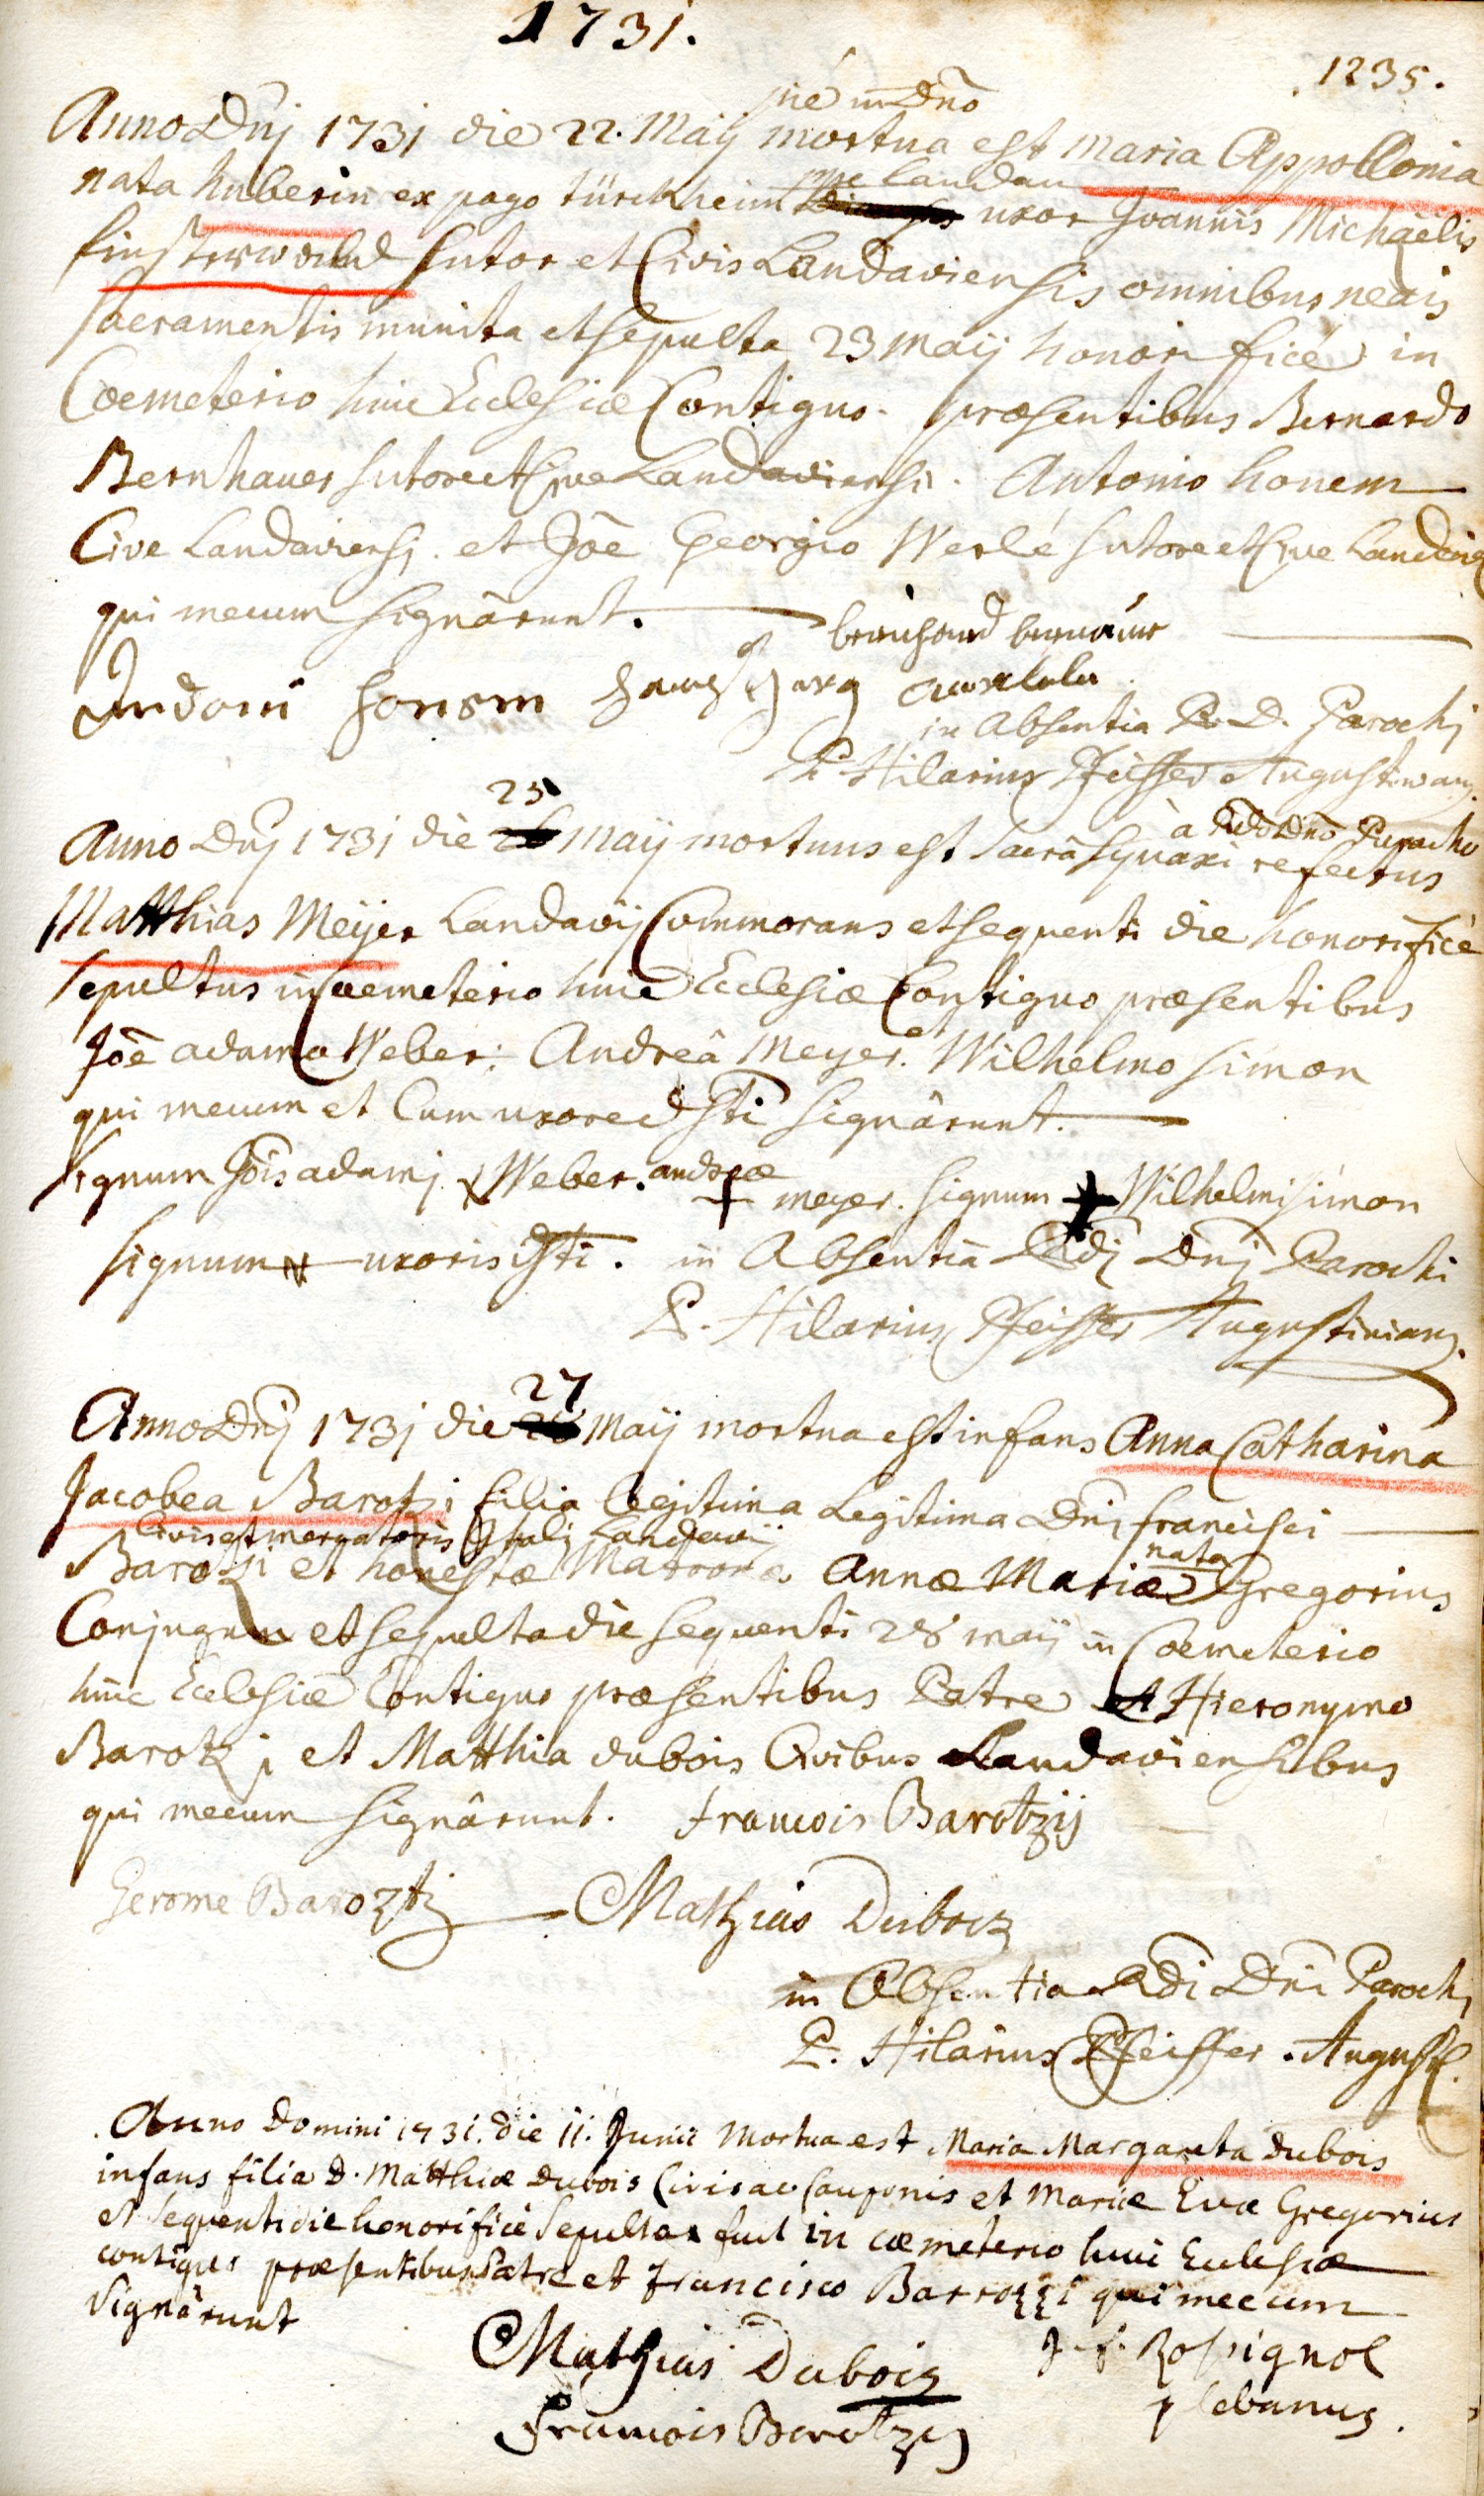 1731.
1235.
piè in Dnō
Anno Dnj 1731 die 22. Maij mortua est Maria Appollonia
nata huberin ex pago türckheim prope Landau uxor Joannis Michaëlis
finsterwald Sutor et Civis Landaviensis omnibus necis
sacramentis munita et sepulta 23 maij honorificè in
Coemeterio huic Ecclesiæ Contiguo. præsentibus Bernardo
Bernhauer sutore et Cive Landaviensi. Antonio honem
Cive Landaviensi. et Joē Georgio Werlé sutore et Cive
qui mecum signârunt.
Andoni honem
in Absentia R. D. Parochj
P. Hilarius Pfeiffer Augustinianus
25 à Rdo Dnō Parocho
Anno Dnj 1731 die Maij mortuus est sacrâ synaxi refectus
Matthias Meÿer Landavij Commorans et sequenti die honorificè
sepultus in Coemeterio huic Ecclesiæ Contiguo præsentibus
Joē adamo Weber: Andreâ Meyer. et Wilhelmo simon
qui mecum et Cum uxore dfti signârunt.
Signum Jōis adamj Weber. andreæ + meyer. signum + Wilhelmi simon
signum uxoris dfti. in Absentiâ Rdj Dnj Parochi
P. Hilarius Pfeiffer Augustinianus.
27
Anno Dnj 1731 die Maij mortua est infans Anna Catharina
Jacobea Barotzi filia legitima Legitima Dnj francisci
Civis et mercatoris Itali Landavij
Barotzi et honestæ Matronæ Annæ Mariæ nata Gregorius
Conjugum et sepulta die sequenti 28 maij in Coemeterio
huic Ecclesiæ Contiguo præsentibus Patre et Hieronymo
Barotzj et Matthia dubois Civibus Landaviensibus
qui mecum signârunt. francois Barotzij
Gerome Barozti Mathias Duboiz
in Absentia Rdi Dni Parochj
P. Hilarius Pfeiffer. August.
Anno Domini 1731. die 11. Junii Mortua est Maria Margareta dubois
infans filia D. Matthiæ dubois Civis ac Cauponis et Mariæ Evæ Gregorius
et sequenti die honorificè sepulta fuit in cæmeterio huic Ecclesiæ
contiguo præsentibus Patre et Francisco Barrozzi qui mecum
signârunt
Mathias Dubois
J. f. Rossignol
plebanus.
Francois Barotzij